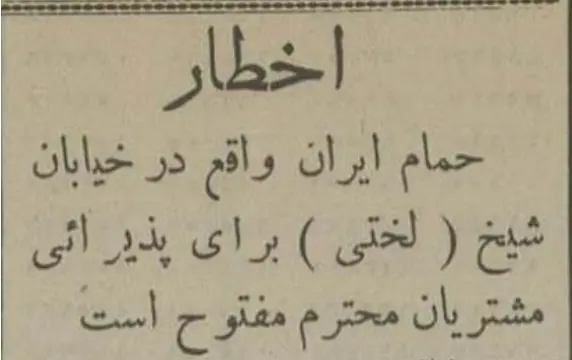 اخطار
حمام ایران واقع در خیابان
شیخ ( لختی ) برای پذیرائی
مشتریان محترم مفتوح است